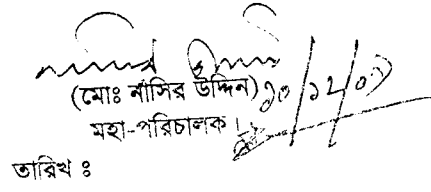 (মোঃ নাসির উদ্দিন) ১০/১২/০৭
মহা-পরিচালক
তারিখ ঃ